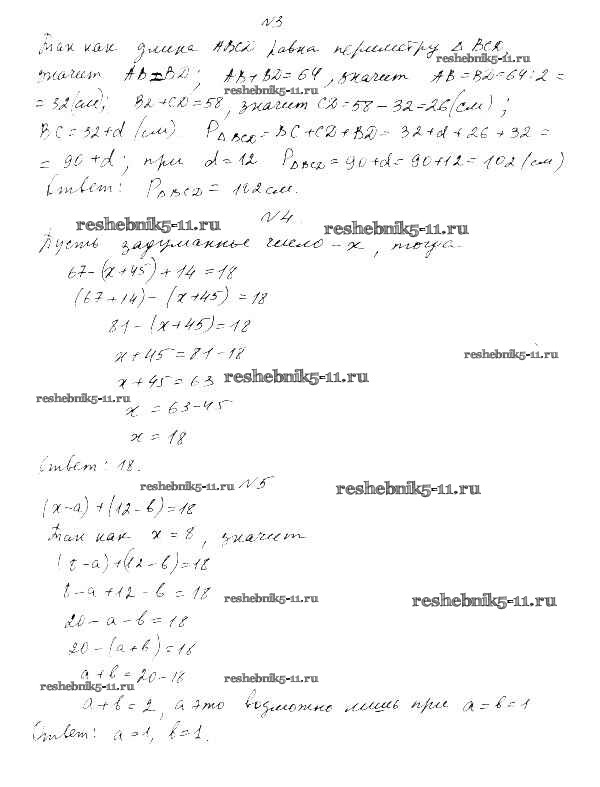 N3
Так как длина ABCD равна периметру Δ BCD,
reshebnik5-11.ru
значит AB=BD; AB+BD=64, значит AB=BD=64:2=
reshebnik5-11.ru
=32(см); BD+CD=58, значит CD=58-32=26(см);
BC=32+d (см) PΔBCD=BC+CD+BD=32+d+26+32=
=90+d; при d=12 PΔBCD=90+d=90+12=102(см)
Ответ: PΔBCD=102см.
reshebnik5-11.ru N4. reshebnik5-11.ru
Пусть задуманное число -x, тогда
67-(x+45)+14=18
(67+14)-(x+45)=18
81-(x+45)=18
x+45=81-18 reshebnik5-11.ru
x+45=63 reshebnik5-11.ru
reshebnik5-11.ru
x=63-45
x=18
Ответ: 18.
reshebnik5-11.ru N5 reshebnik5-11.ru
(x-a)+(12-b)=18
Так как x=8, значит
(8-a)+(12-b)=18
8-a+12-b=18 reshebnik5-11.ru
reshebnik5-11.ru
20-a-b=18
20-(a+b)=18
a+b=20-18 reshebnik5-11.ru
reshebnik5-11.ru
a+b=2, а это возможно лишь при a=b=1
Ответ: a=1, b=1.